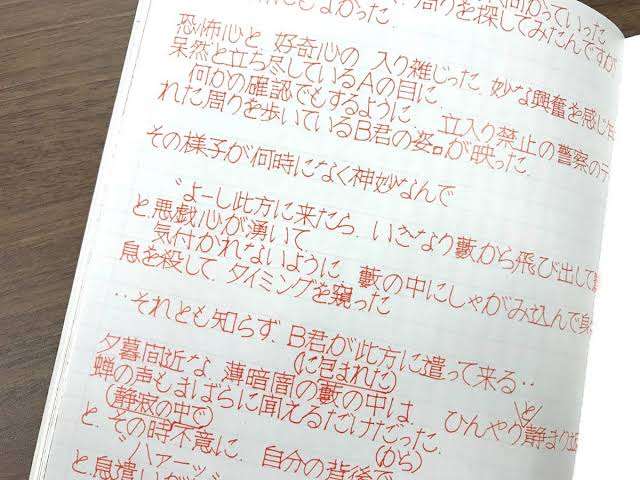 にもよかった. 周りを探してみたんですが
恐怖心と 好奇心の 入り雑じった 妙な興奮を感じ
呆然と立ち尽しているAの目に.
何かの確認でもするように 立入り禁止の警察のテ
れた周りを歩いているB君の姿。が映った.
その様子が何時になく神妙なんで
〝よーし此方に来たら. いきなり藪から飛び出して
と悪戯心が湧いて
気付かれないように. 藪の中にしゃがみ込んで身
息を殺して. タイミングを窺った
‥それとも知らず. B君が此方に遣って来る‥
夕暮間近な. 薄暗闇の藪の中は. ひんやり静まり
(に包まれた)
と
蝉の声もまばらに聞えるだけだった.
(静寂の中で)
と. その時不意に. 自分の背後で
(から)
〝ハァーッ
と息遣いが